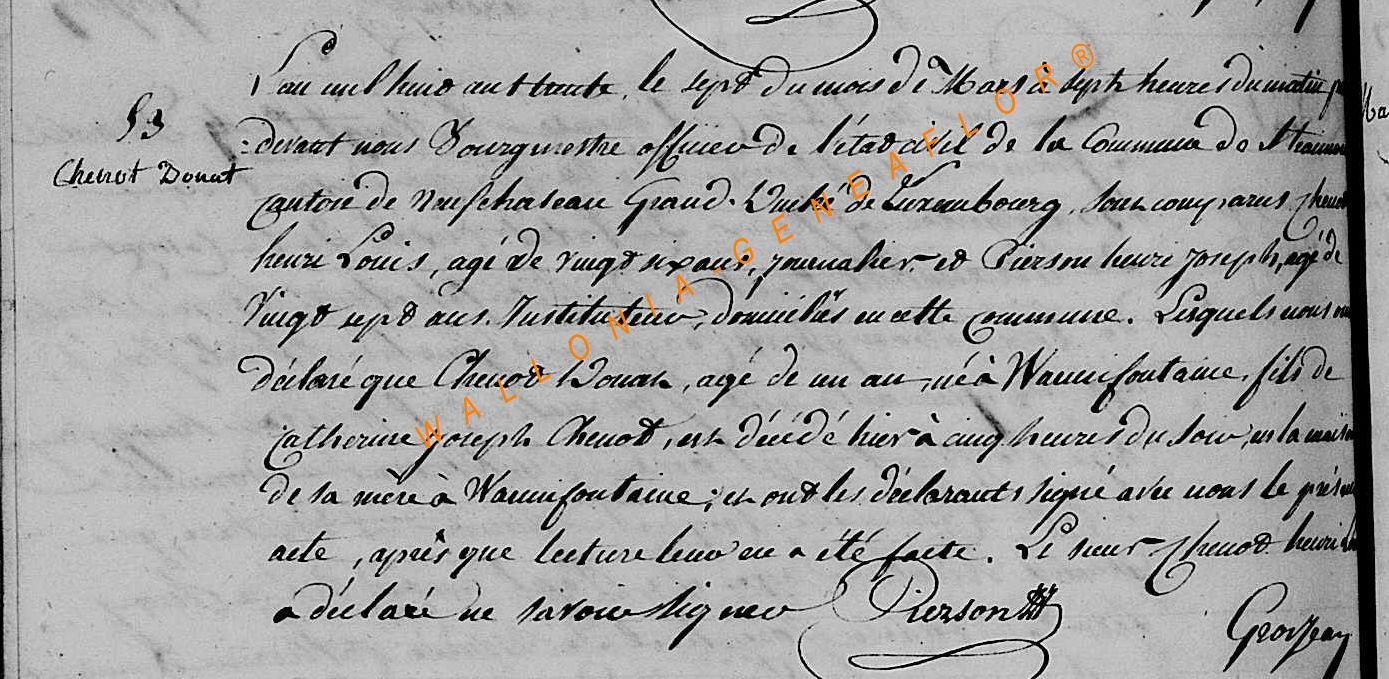 53
Chenot Donat
L'an mil huit cent trente, le sept du mois de Mars à sept heures du matin par
=devant nous Bourgmestre officier de l'état civil de la Commune de
canton de Neufchateau Grand-Duché de Luxembourg, sont comparus Chenot
henri Louis, agé de vingt six ans, journalier et Pierson henri joseph, agé de
Vingt sept ans Instituteur, domiciliés en cette commune. Lesquels nous ont
déclaré que Chenot Donat, agé de un an, né à Warmifontaine, fils de
Catherine joseph Chenot, est décédé hier à cinq heures du soir, en la maison
de sa mère à Warmifontaine, et ont les déclarants signé avec nous le présent
acte, après que lecture leur en a été faite. Le sieur Chenot henri
a déclaré ne savoir signer Pierson
WALLONIA-GENEAFLOR®